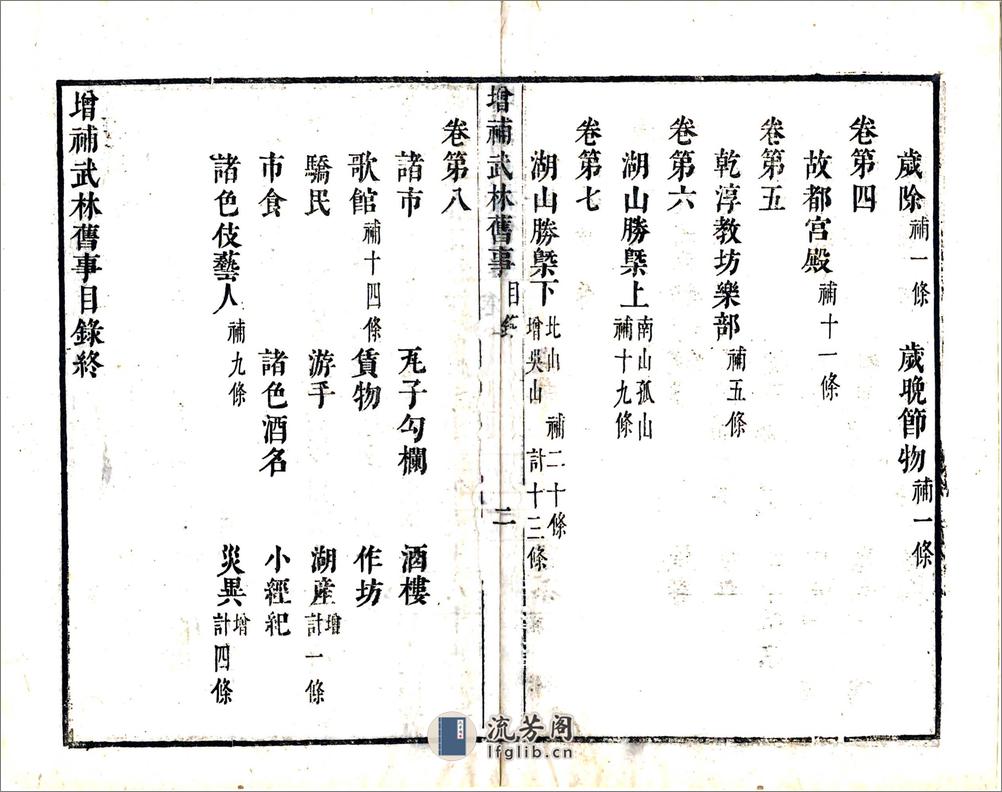 歲除補一條　歲晚節物補一條
卷第四
故都宮殿補十一條
卷第五
乾淳教坊樂部補五條
卷第六
湖山勝槩上南山孤山補十九條
卷第七
湖山勝槩下北山　補二十條增吳山　計十三條
增補武林舊事　目錄　二
卷第八
諸市　瓦子勾欄　酒樓
歌館補十四條　賃物　作坊
驕民　游手　湖產增計一條
市食　諸色酒名　小經紀
諸色伎藝人補九條　災異增計四條
增補武林舊事目錄終
流芳阁
lfglib.cn